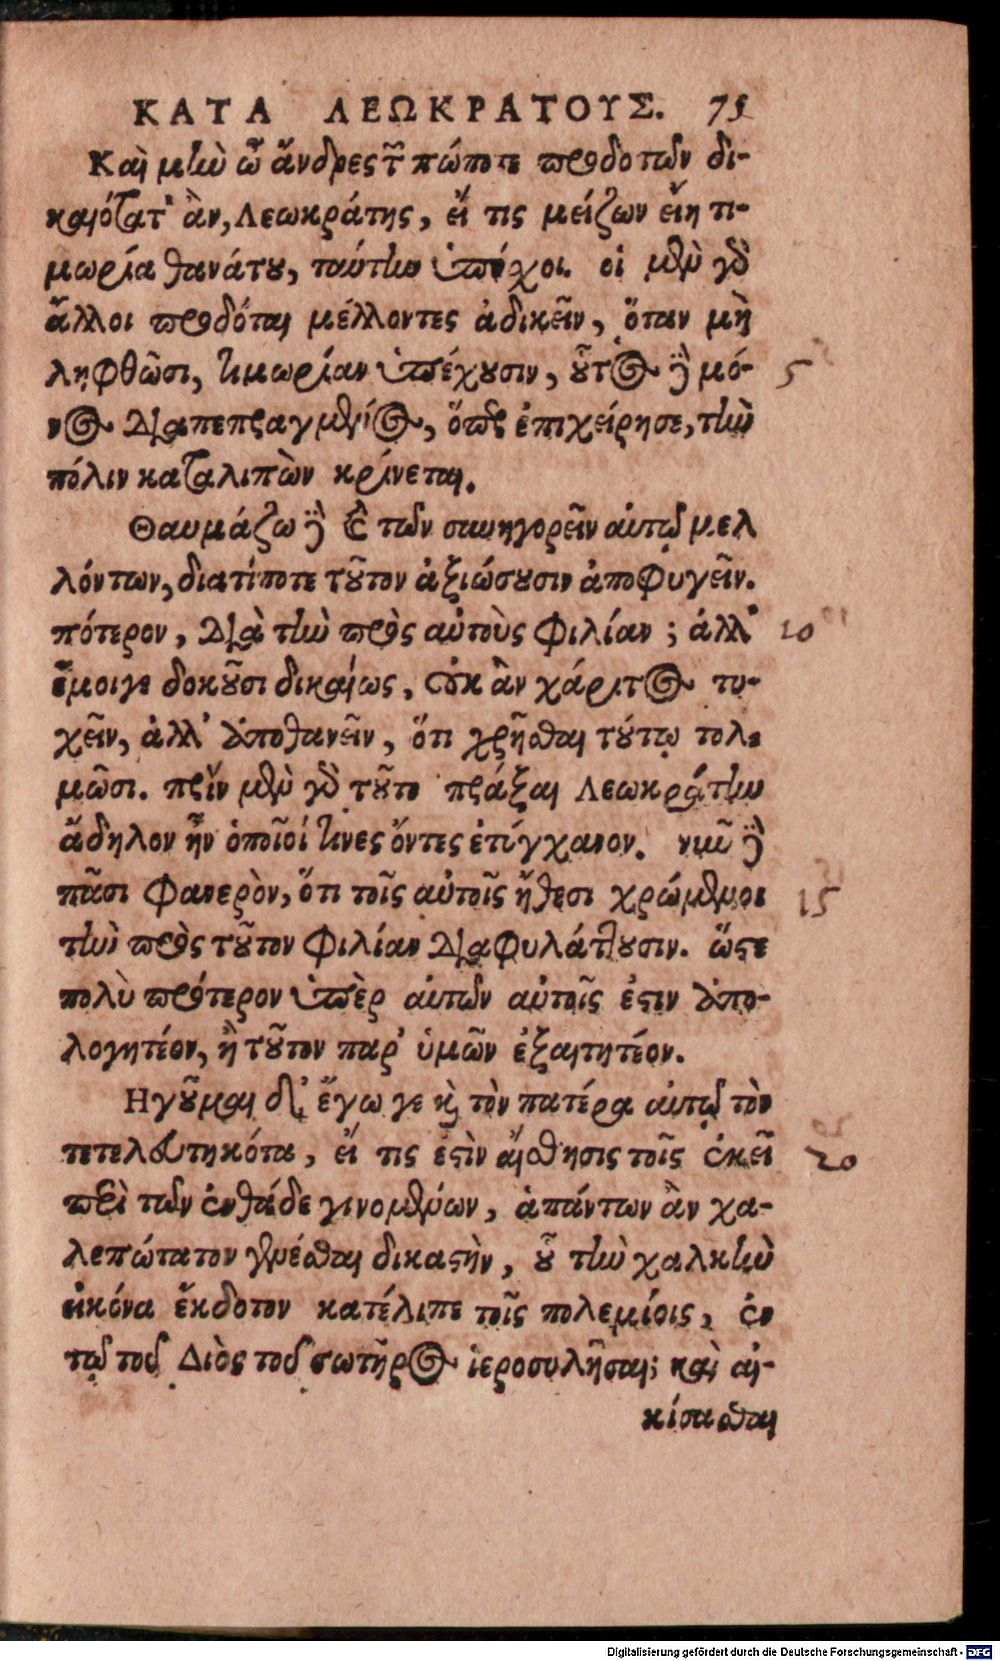 ΚΑΤΑ ΛΕΩΚΡΑΤΟΥΣ. 75
Καὶ μὴν ὦ ἄνδρες τῶν πώποτε προδοτῶν δι-
καιότατ' ἂν, Λεωκράτης, εἴ τις μείζων εἴη τι-
μωρία θανάτου, ταύτην ὑπόχοι. οἱ μὲν γὸ
ἄλλοι προδόται μέλλοντες ἀδικεῖν, ὅταν μὴ
ληφθῶσι, τιμωρίαν ὑπέχουσιν, οὗτος δὲ μό- 5
νος διαπεπραγμένος, ὅπερ ἐπιχείρησε, τὴν
πόλιν καταλιπὼν κρίνεται.
Θαυμάζω δὲ καὶ τῶν συνηγορεῖν αὐτῷ μελ
λόντων, διατίποτε τοῦτον ἀξιώσουσιν ἀποφυγεῖν.
πότερον, διὰ τὴν πρὸς αὐτοὺς φιλίαν; ἀλλ' 10
ἔμοιγε δοκοῦσι δικαίως, οὐκ ἂν χάριτος τυ-
χεῖν, ἀλλ' ἀποθανεῖν, ὅτι χρῆσθαι τούτῳ τολ-
μῶσι. πρὶν μὲν γὸ τοῦτο πρᾶξαι Λεωκράτην
ἄδηλον ἦν ὁποῖοί τινες ὄντες ἐτύγχανον. νῦν δὲ
πᾶσι φανερὸν, ὅτι τοῖς αὐτοῖς ἤθεσι χρώμενοι 15
τὴν πρὸς τοῦτον φιλίαν διαφυλάττουσιν. ὥστε
πολὺ πρότερον ὑπὲρ αὑτῶν αὐτοῖς ἐστιν ἀπο-
λογητέον, ἢ τοῦτον παρ' ὑμῶν ἐξαιτητέον.
Ηγοῦμαι δ' ἔγω γε καὶ τὸν πατέρα αὐτῷ τὸν
τετελευτηκότα, εἴ τις ἐστὶν αἴσθησις τοῖς ἐκεῖ 20
περὶ τῶν ἐνθάδε γινομένων, ἁπάντων ἂν χα-
λεπώτατον γενέσθαι δικαστὴν, οὗ τὴν χαλκῆν
εἰκόνα ἔκδοτον κατέλιπε τοῖς πολεμίοις, ἐν
τῷ τοῦ Διὸς τοῦ σωτῆρος ἱεροσυλῆσαι; καὶ αἰ-
κίσασθαι
Digitalisierung gefördert durch die Deutsche Forschungsgemeinschaft - DFG